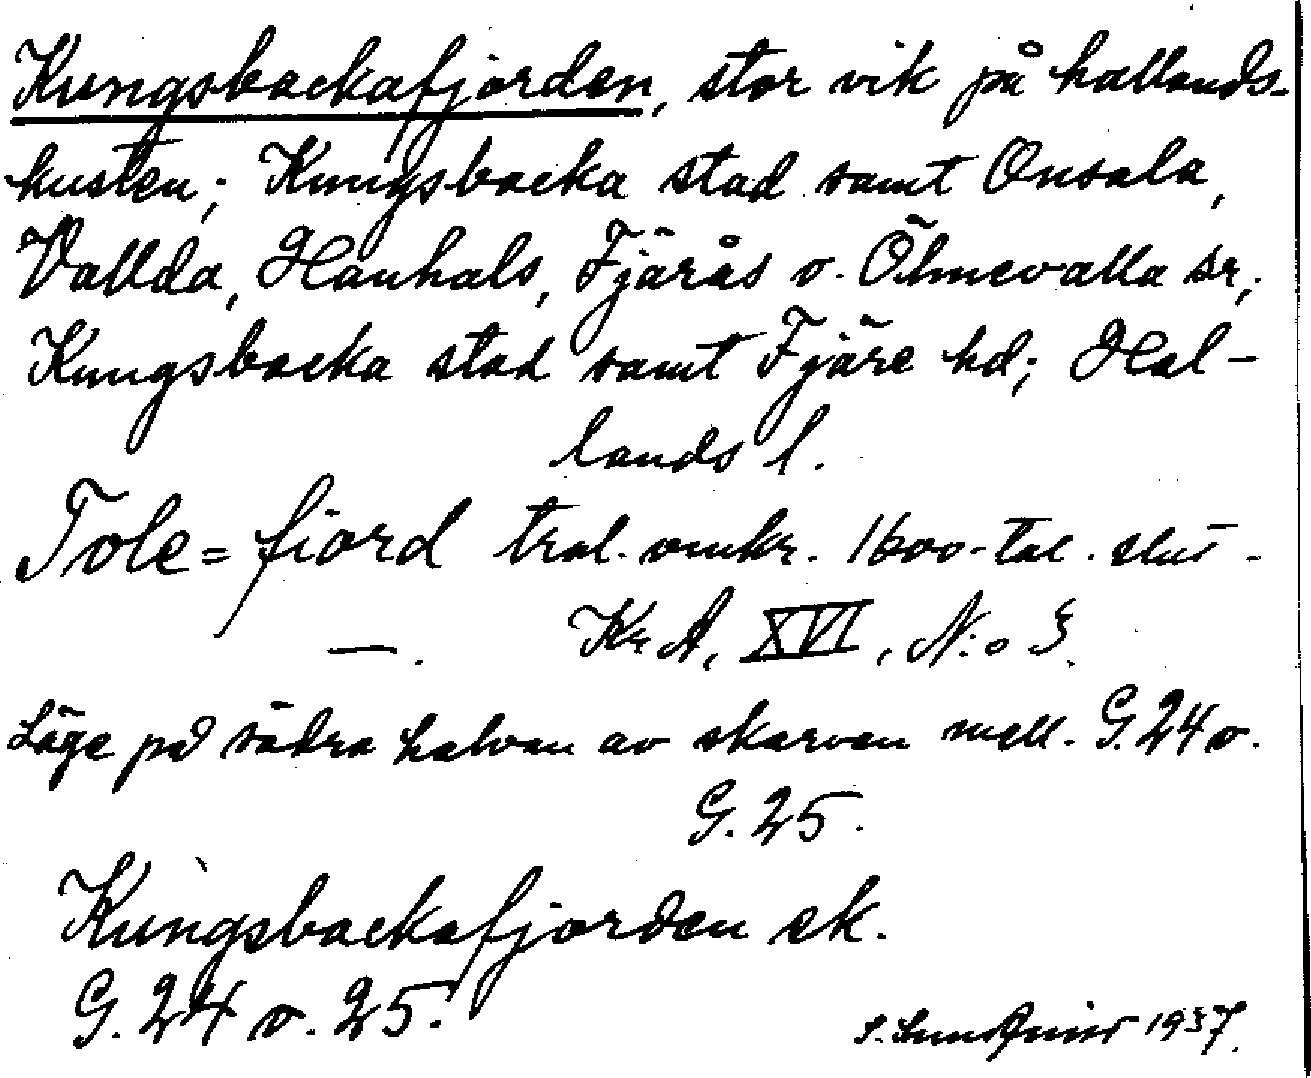 Kungsbackafjorden, stor vik på hallands-
kusten; Kungsbacka stad samt Onsala,
Vallda, Hanhals, Fjärås o. Ölmevalla sr;
Kungsbacka stad samt Fjäre hd; Hal-
lands l.
Tole=fiord tral. omkr. 1600-tal. slut -
—. KrA, XVI, N:o 3.
Läge på södra halvan av skarven mell. G.24 o.
G. 25.
Kungsbackafjorden ek.
G. 24 o. 25.
S. Sundqvist 1937.